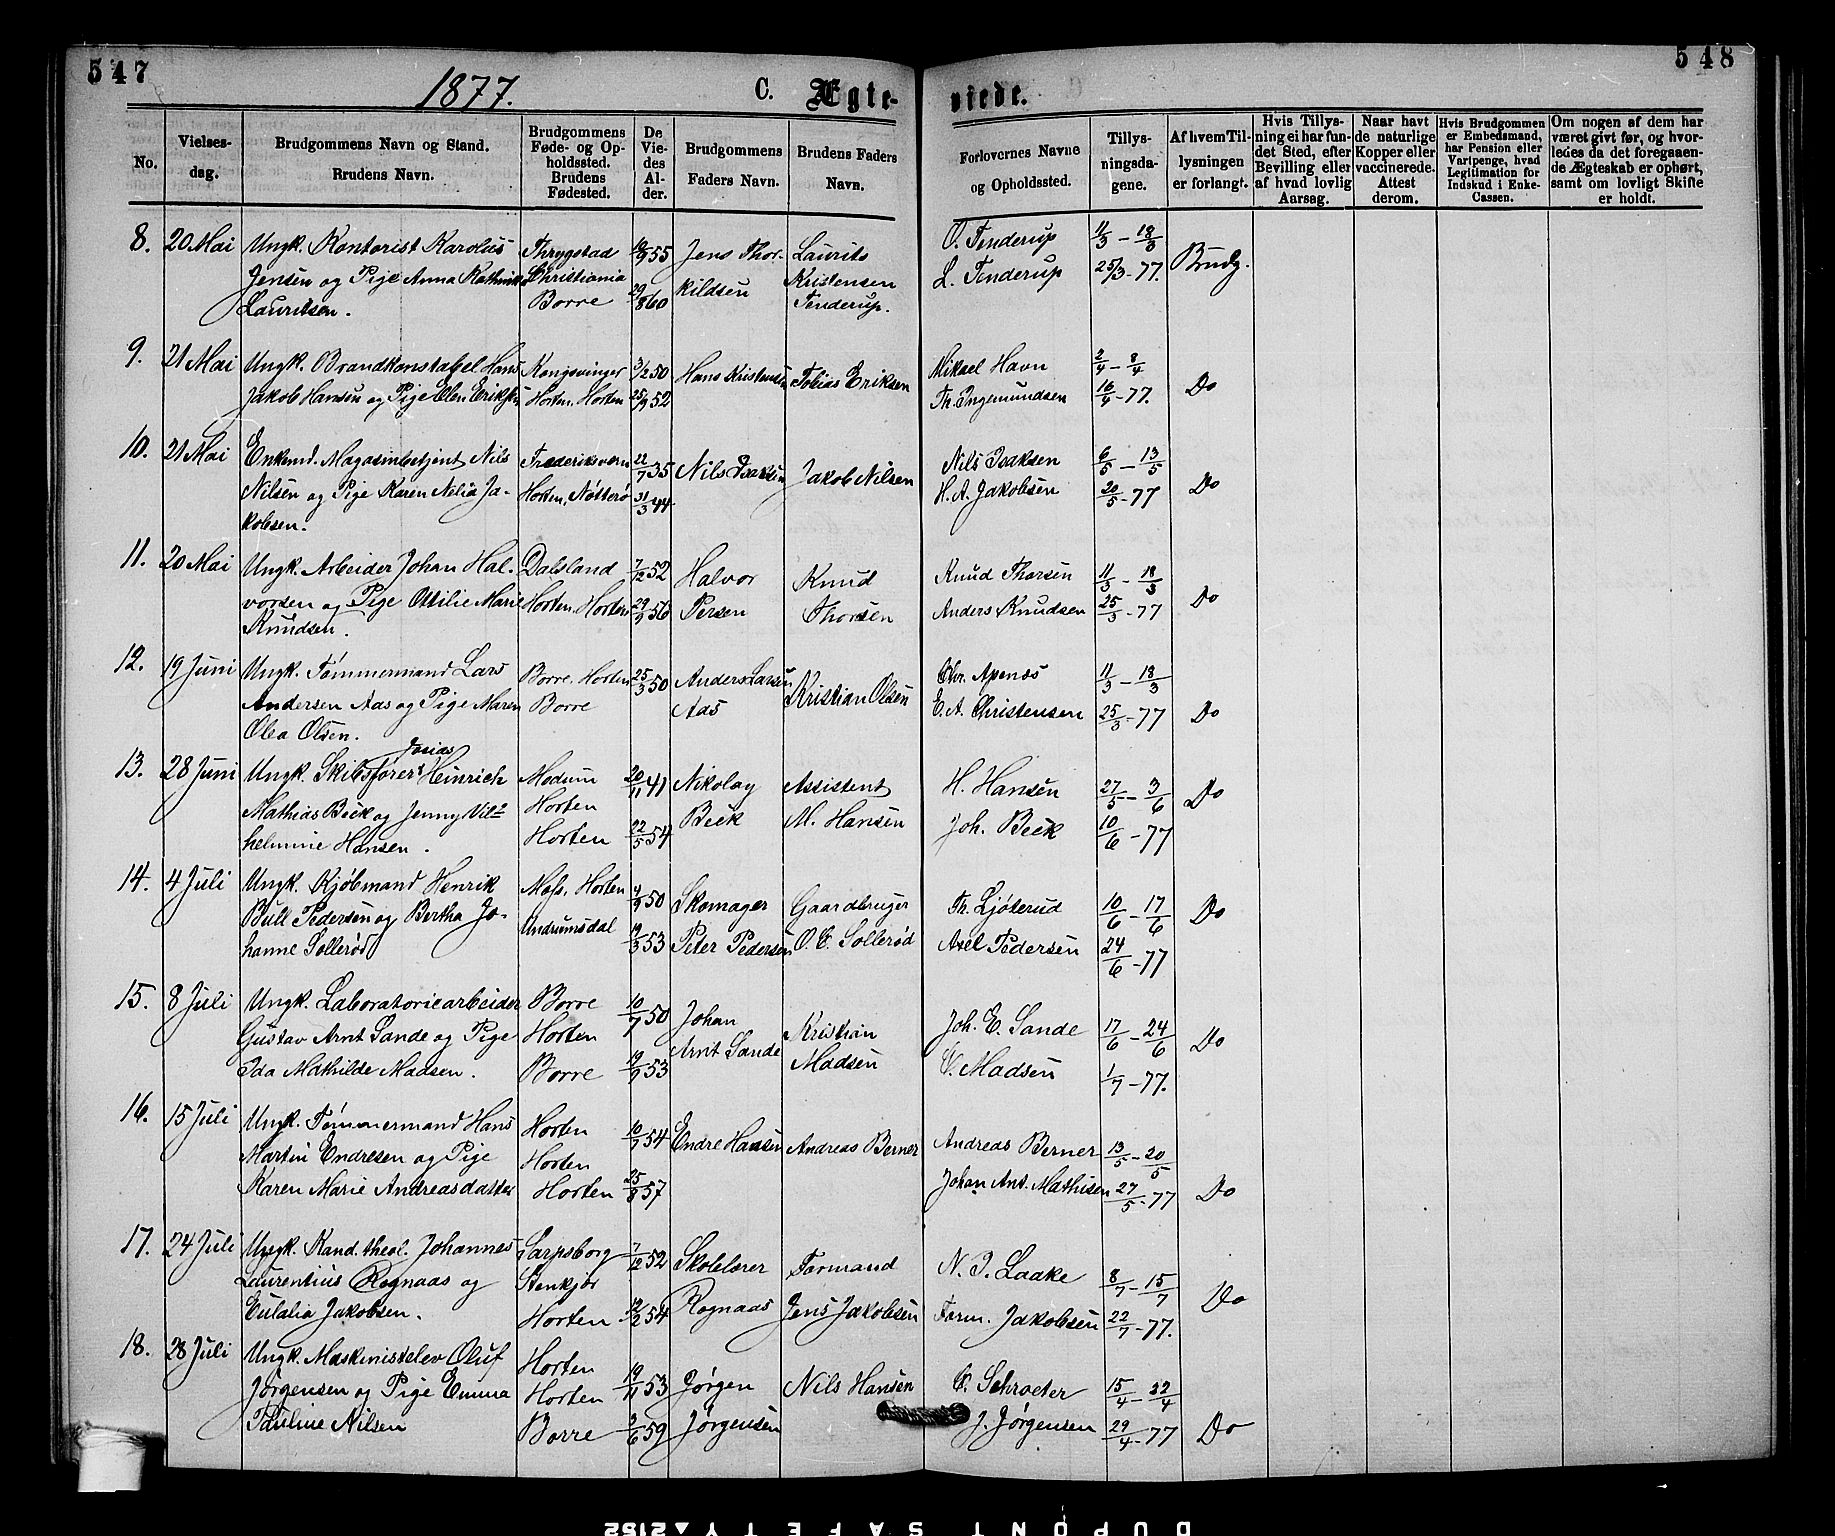 547
548
1877.
C. Ægte-
viede.
No.
Vielses-
dag.
Brudgommens Navn og Stand.
Brudens Navn.
Brudgommens
Føde- og Op-
holdssted.
Brudens
Fødested.
De
Vie-
des
Al-
der.
Brudgommens
Faders Navn.
Brudens Faders
Navn.
Forlovernes Navne
og Opholdssted.
Tillys-
ningsda-
gene.
Af hvem Til-
lysningen
er forlangt.
Hvis Tillys-
ning ei har fun-
det Sted, efter
Bevilling eller
af hvad lovlig
Aarsag.
Naar havt
de naturlige
Kopper eller
vaccinerede.
Attest
derom.
Hvis Brudgommen
er Embedsmand,
har Pension eller
Vartpenge, hvad
Legitimation for
Indskud i Enke-
Cassen.
Om nogen af dem har
været givt før, og hvor-
ledes da det foregaaen-
de Ægteskab er ophørt,
samt om lovligt Skifte
er holdt.
8. 20 Mai Ungk. Kontorist Karolus Thrygstad 19/9 55 Jens Thor- Laurits O. Tenderup 11/3 - 18/3
Jensen og Pige Anna Kathrine Christiania kildsen Kristensen L. Tenderup 25/3 - 77. Brudg.
Lauritsen. Borre 29/8 60 Tenderup.
9. 21 Mai Ungk. Brandkonstabel Hans Kongsvinger 3/2 50 Hans Kristensen Tobias Eriksen Mikael Havn 2/4 - 8/4
Jakob Hansen og Pige Elen Eriksen Horten. Horten 25/9 52 Th. Ingemundsen 16/4 - 77. Do
10. 21 Mai Enkemd. Magasinbetjent Nils Frederiksværn 22/7 35 Nils Isaksen Jakob Nilsen Nils Isaksen 6/5 - 13/5
Nilsen og Pige Karen Nilia Ja- Horten. Nøtterø 31/3 44 H. A. Jakobsen 20/5 - 77 Do
kobsen.
11. 20 Mai Ungk. Arbeider Johan Hal- Dalsland 7/12 52 Halvor Knud Knud Thorsen 11/3 - 18/3
vorsen og Pige Ottilie Marie Horten. Horten 29/9 56 Persen Thorsen Anders Knudsen 25/3 - 77 Do
Knudsen.
12. 19 Juni Ungk. Tømmermand Lars Borre. Horten 25/3 50 Anders Larsen Kristian Olsen Chr. Apenæs 11/3 - 18/3
Andersen Aas og Pige Maren Borre Aas E. A. Christensen 25/3 - 77 Do
Olea Olsen.
Josias
13. 28 Juni Ungk. Skibsfører Heinrich Modum 20/11 41 Nikolay Assistent H. Hansen 27/5 - 3/6 Do
Mathias Beck og Jenny Vil- Horten Beck M. Hansen Joh. Beck 10/6 - 77
helmine Hansen. Horten 22/5 54
14. 4 Juli Ungk. Kjøbmand Henrik Moss. Horten 4/9 50 Skomager Gaardbruger Th. Ljøterud 10/6 - 17/6 Do
Bull Pedersen og Bertha Jo- Undrumsdal 19/3 53 Peter Pedersen O. C. Sollerød Axel Pedersen 24/6 - 77
hanne Sollerød
15. 8 Juli Ungk. Laboratoriearbeider Borre 10/7 50 Johan Kristian Joh. E. Sande 17/6 - 24/6 Do
Gustav Arnt Sande og Pige Horten Arnt Sande Madsen C. Madsen 1/7 - 77.
Ida Mathilde Madsen. Borre 19/9 53
16. 15 Juli Ungk. Tømmermand Hans Horten 10/7 54 Endre Hansen Andreas Berner Andreas Berner 13/5 - 20/5
Martin Endresen og Pige Horten Johan Ant. Mathisen 27/5 - 77 Do
Karen Marie Andreasdatter Horten 25/8 57
17. 24 Juli Ungk. Kand. theol. Johannes Sarpsborg 7/12 52 Skolelærer Formand N. J. Laake 8/7 - 15/7
Laurentius Rognaas og Stenkjør Rognaas Jens Jakobsen Form. Jakobsen 22/7 - 77. Do
Eulalia Jakobsen. Horten 12/2 54
18. 28 Juli Ungk. Maskinistelev Oluf Horten 19/11 53 Jørgen Nils Hansen C. Schroeter 15/4 - 22/4
Jørgensen og Pige Emma Horten Jørgensen J. Jørgensen 29/4 - 77 Do
Pauline Nilsen Borre 2/6 59
DUPONT SAFETY 2152